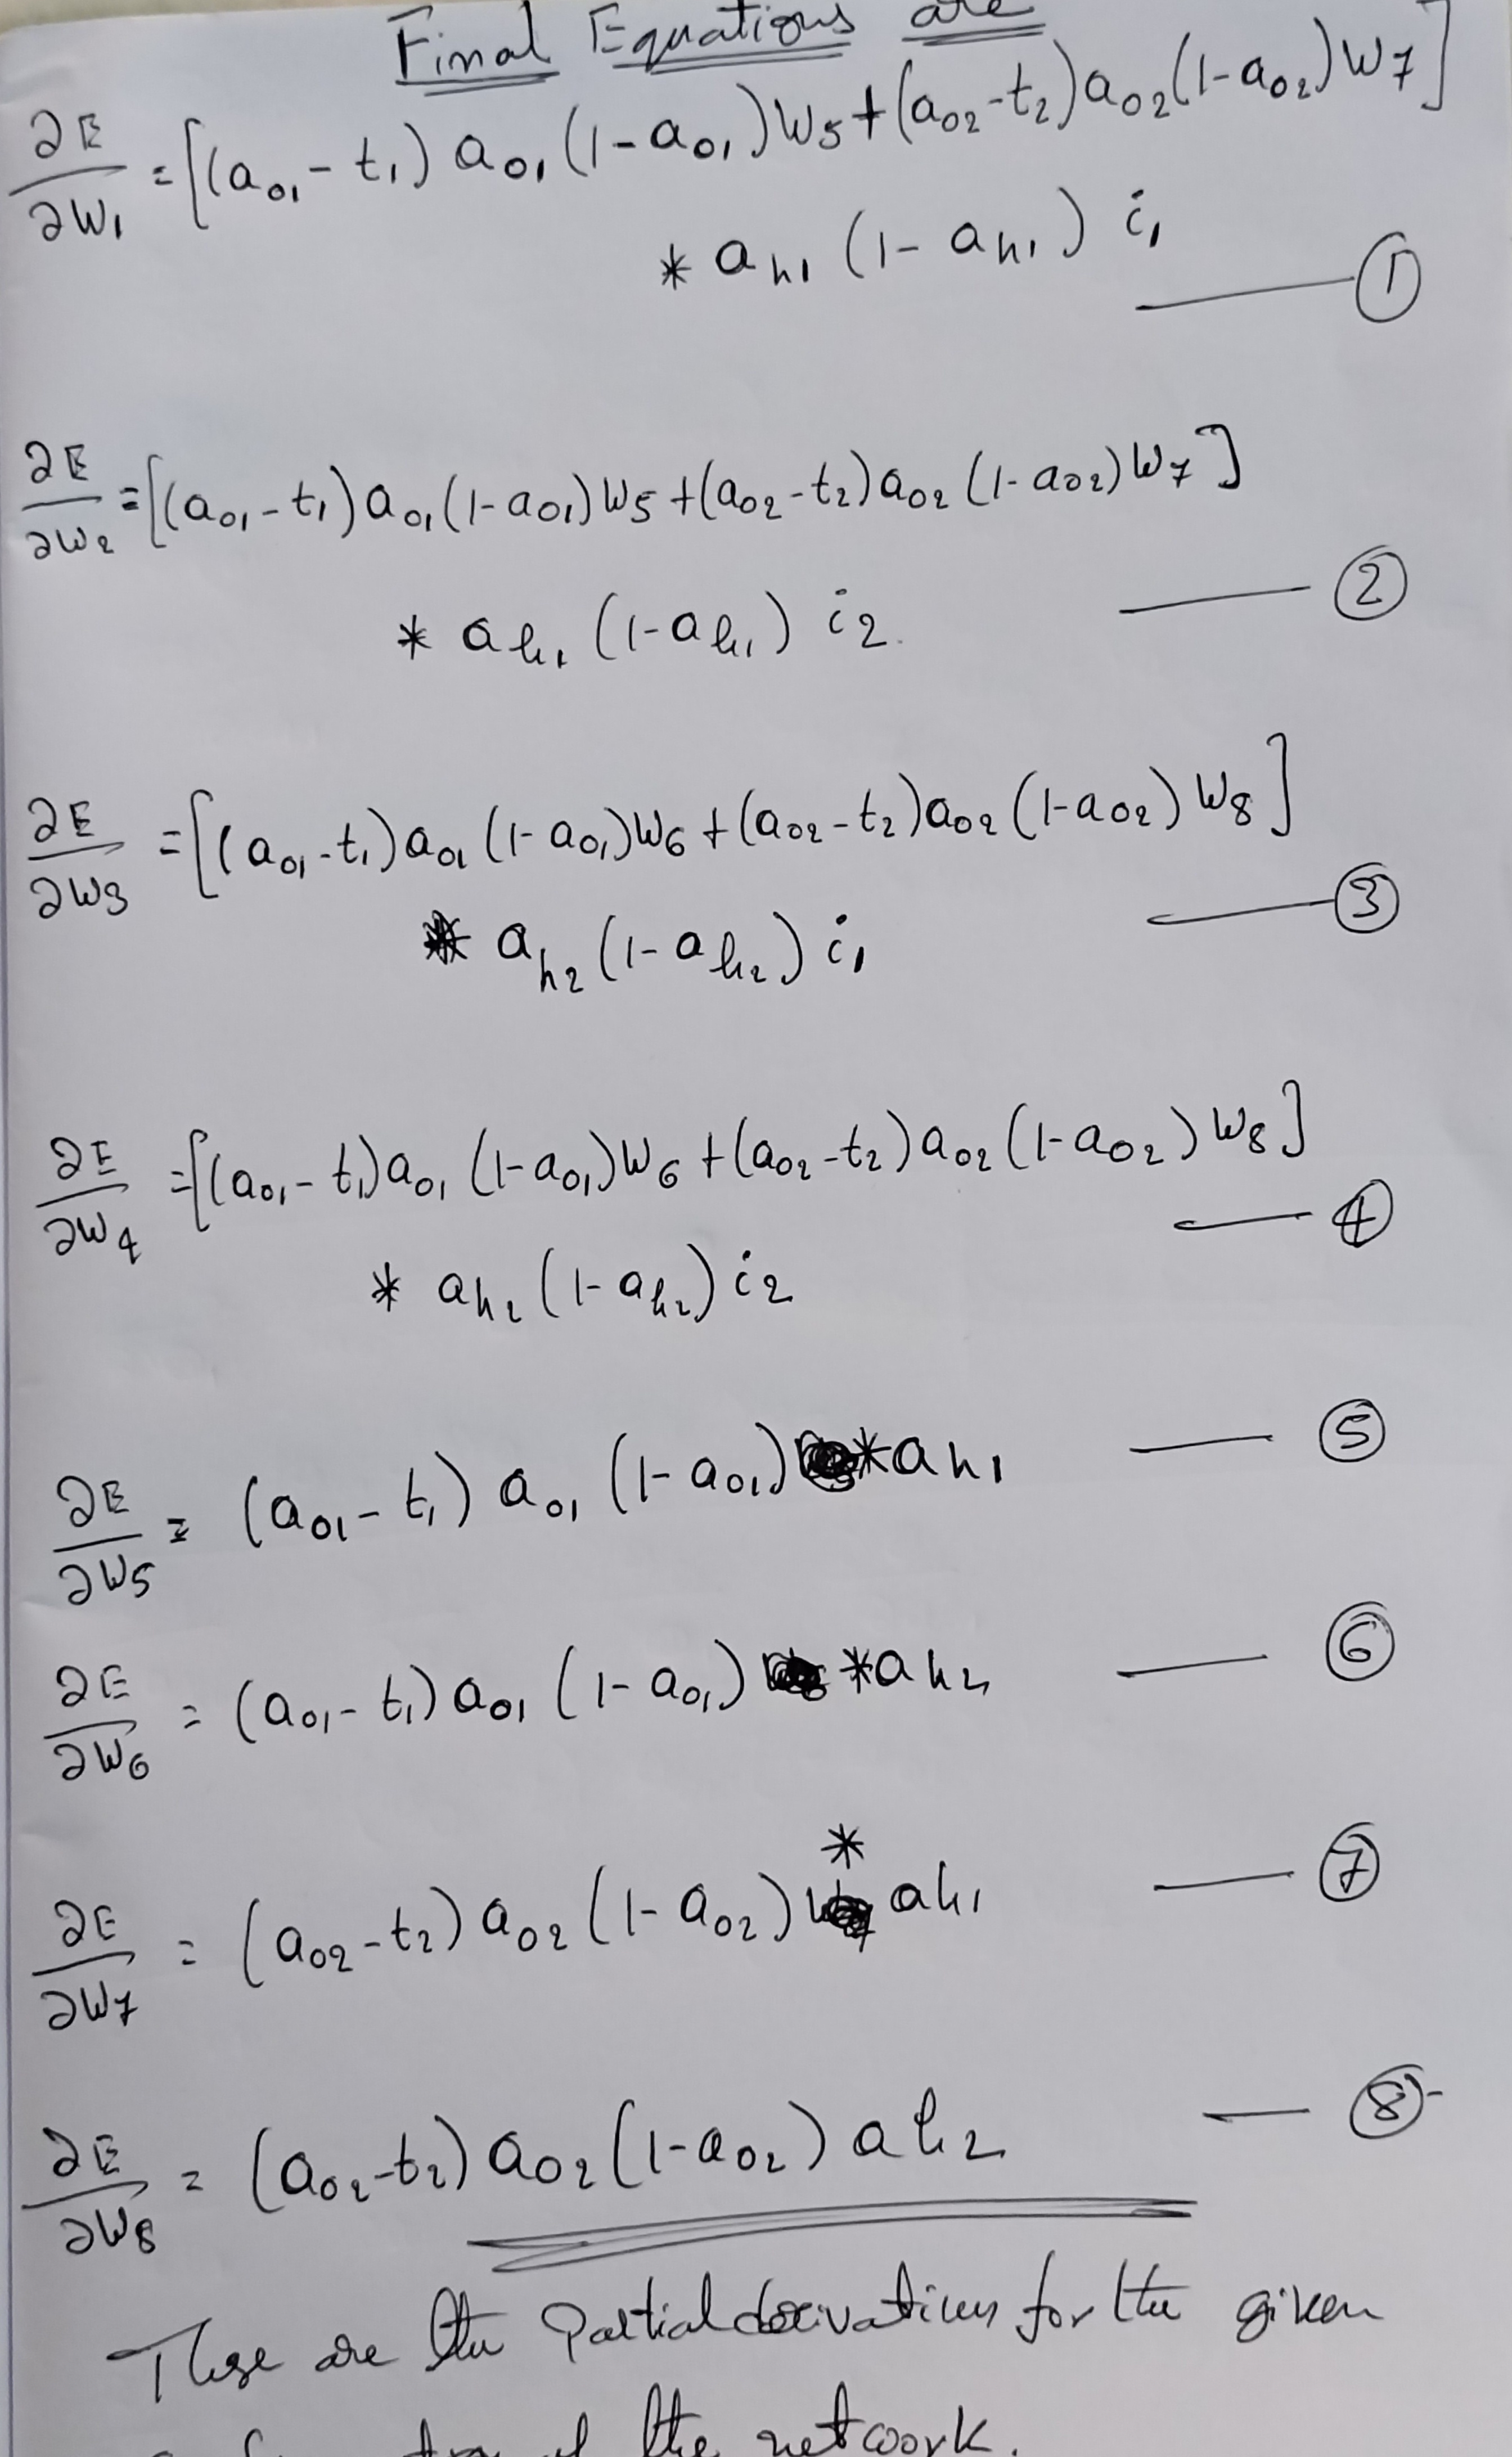 Final Equations are
∂E/∂w₁ = [(a₀₁ - t₁) a₀₁ (1 - a₀₁) w₅ + (a₀₂ - t₂) a₀₂ (1 - a₀₂) w₇]
* aₕ₁ (1 - aₕ₁) i₁ —— ①
∂E/∂w₂ = [(a₀₁ - t₁) a₀₁ (1 - a₀₁) w₅ + (a₀₂ - t₂) a₀₂ (1 - a₀₂) w₇]
* aₕ₁ (1 - aₕ₁) i₂. —— ②
∂E/∂w₃ = [(a₀₁ - t₁) a₀₁ (1 - a₀₁) w₆ + (a₀₂ - t₂) a₀₂ (1 - a₀₂) w₈]
* aₕ₂ (1 - aₕ₂) i₁ —— ③
∂E/∂w₄ = [(a₀₁ - t₁) a₀₁ (1 - a₀₁) w₆ + (a₀₂ - t₂) a₀₂ (1 - a₀₂) w₈]
* aₕ₂ (1 - aₕ₂) i₂ —— ④
∂E/∂w₅ = (a₀₁ - t₁) a₀₁ (1 - a₀₁) * aₕ₁ —— ⑤
∂E/∂w₆ = (a₀₁ - t₁) a₀₁ (1 - a₀₁) * aₕ₂ —— ⑥
∂E/∂w₇ = (a₀₂ - t₂) a₀₂ (1 - a₀₂) * aₕ₁ —— ⑦
∂E/∂w₈ = (a₀₂ - t₂) a₀₂ (1 - a₀₂) aₕ₂ —— ⑧
These are the Partial derivatives for the given
of the network.